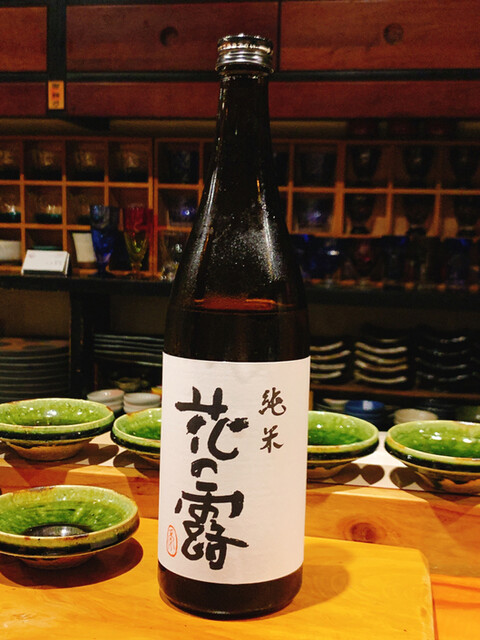 純米
花の露